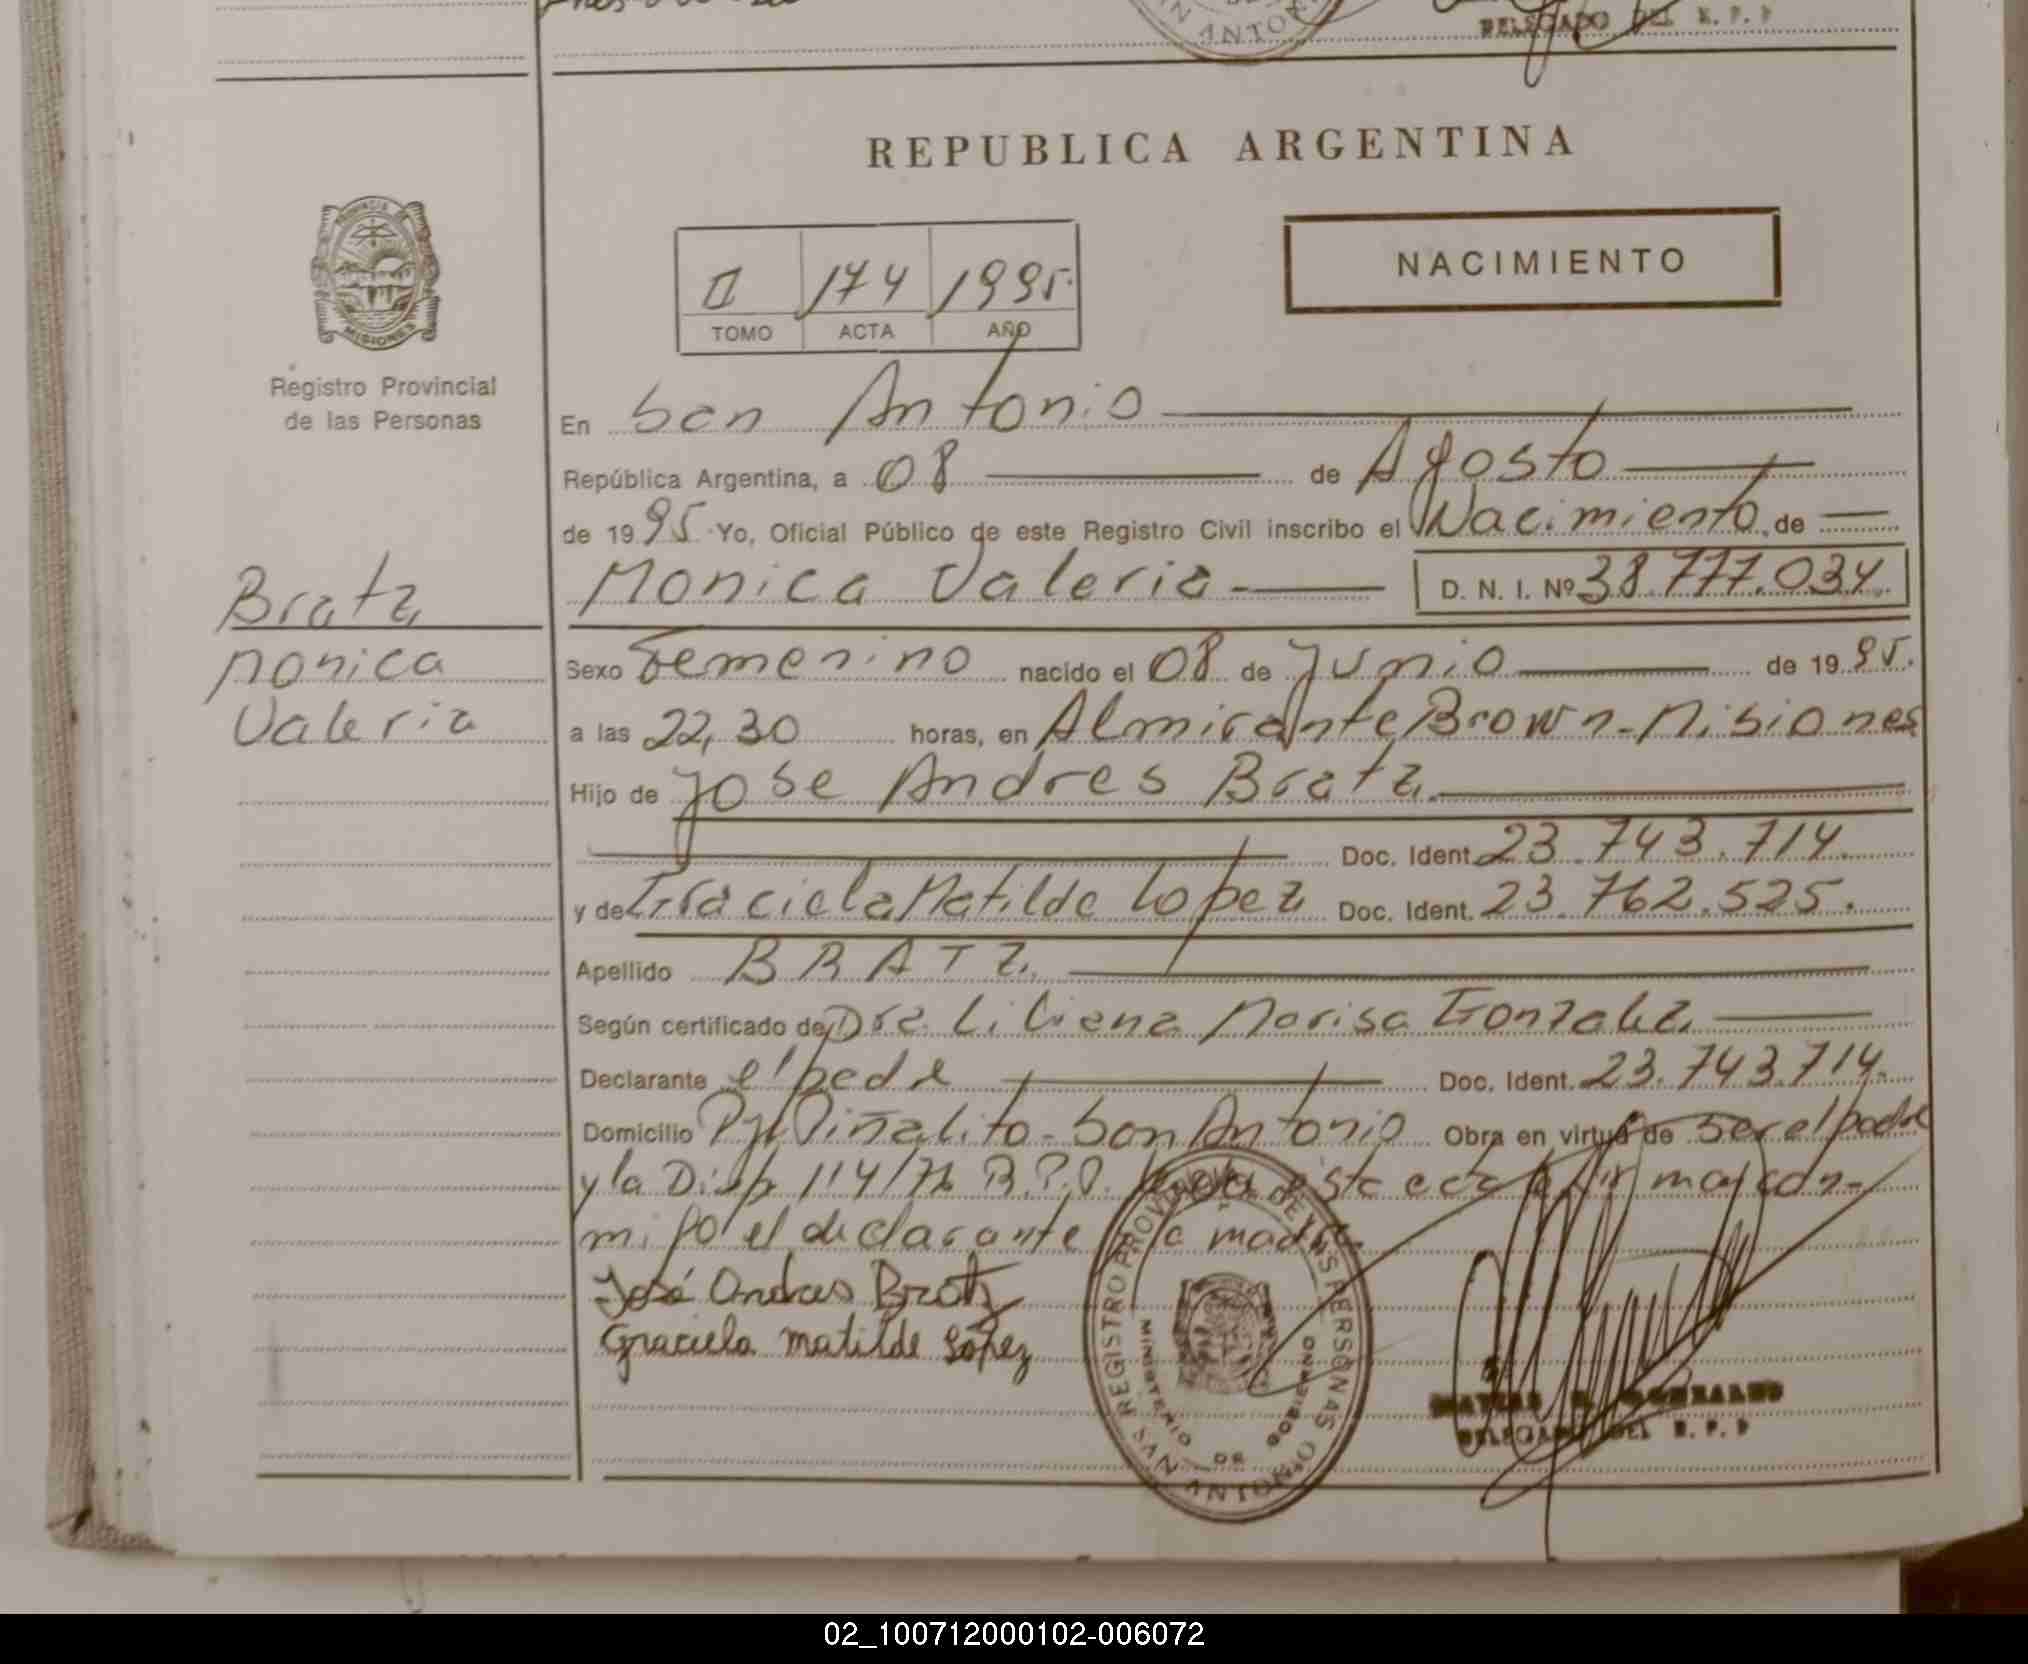 DELEGADO DEL R.P.P
REPUBLICA ARGENTINA
PROVINCIA DE
MISIONES
Registro Provincial
de las Personas
II 174 1995.
TOMO ACTA AÑO
NACIMIENTO
En San Antonio
República Argentina, a 08 de Agosto
de 1995. Yo, Oficial Público de este Registro Civil inscribo el Nacimiento, de
Monica Valeria D. N. I. Nº 38.777.034.
Bratz
Monica
Valeria
Sexo Femenino nacido el 08 de Junio de 1995.
a las 22,30 horas, en Almirante Brown-Misiones
Hijo de Jose Andres Bratz
Doc. Ident. 23.743.714.
y de Graciela Matilde Lopez Doc. Ident. 23.762.525.
Apellido BRATZ
Según certificado de Dra. Liliana Marisa Gonzalez
Declarante el padre Doc. Ident. 23.743.714.
Domicilio Pje Piñalito-San Antonio Obra en virtud de ser el padre
y la Disp 114/76 R.P.P. esta acta con-
migo el declarante la madre
José Andres Bratz
Graciela Matilde López
REGISTRO PROVINCIAL DE LAS PERSONAS
MINISTERIO DE GOBIERNO
SAN ANTONIO
MATIAS GONZALEZ
DELEGADO DEL R.P.P
02_100712000102-006072